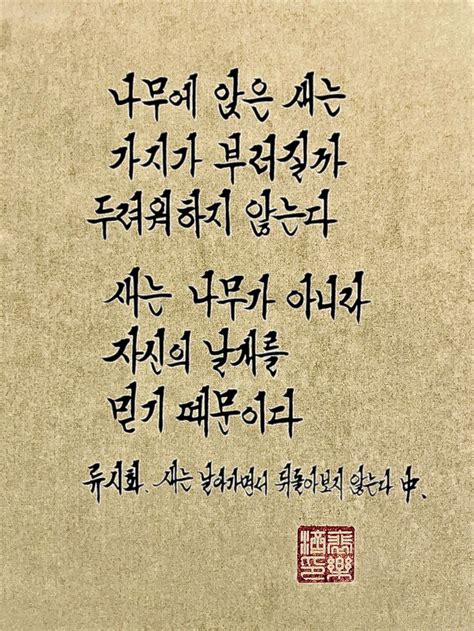 나무에 앉은 새는
가지가 부러질까
두려워하지 않는다
새는 나무가 아니라
자신의 날개를
믿기 때문이다
류시화. 새는 날아가면서 뒤돌아보지 않는다 中.